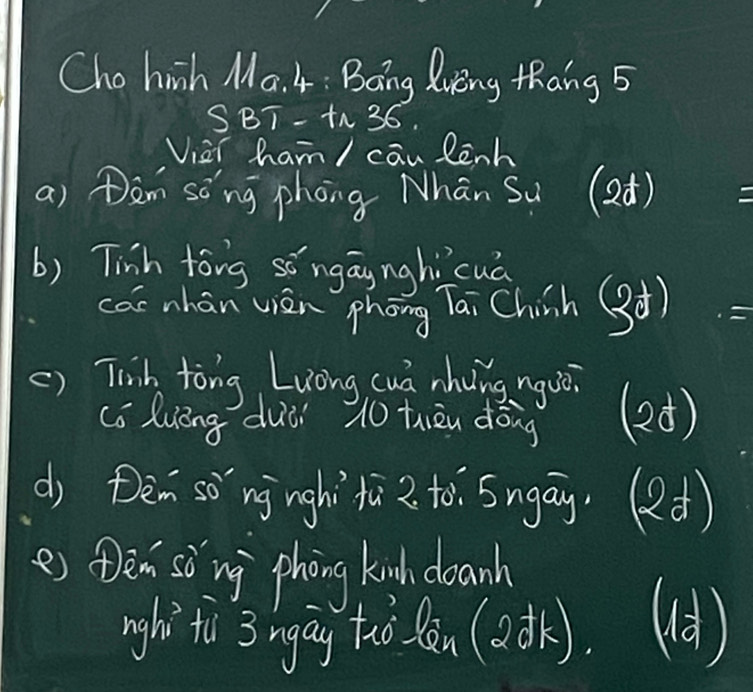 Cho hình 11a.4: Bảng lương tháng 5
SBT - tr 36.
Viết hàm / câu lệnh
a) Đếm số ng phòng Nhân Sự (2đ) =
b) Tính tổng số ngày nghỉ của
các nhân viên phòng Tài Chính (3đ) =
c) Tính tổng Lương của những người
có lương dưới 10 triệu đồng (2đ)
d) Đếm số ng nghỉ từ 2 tới 5 ngày. (2đ)
e) Đếm số ng phòng kinh doanh
nghỉ từ 3 ngày trở lên (2đk). (1đ)